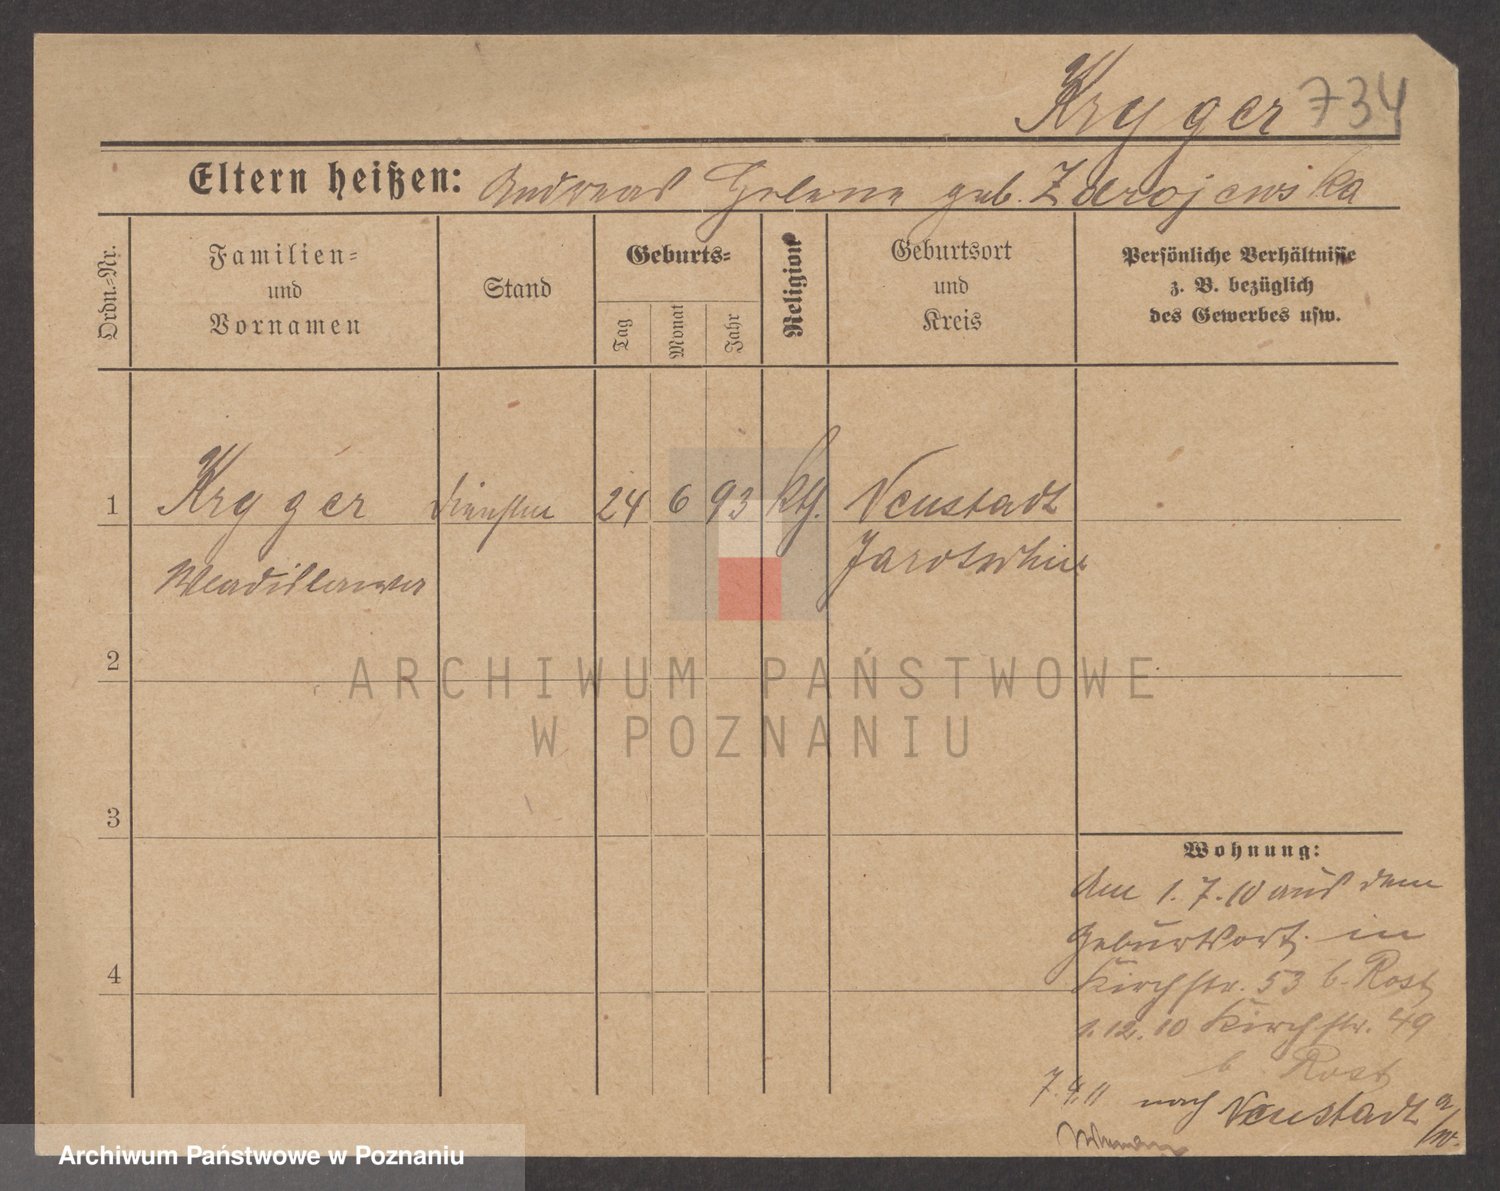 Kryger 734
Eltern heißen: Andreas Helene geb. Zdrojewska
Ordn.-Nr.
Familien-
und
Vornamen
Stand
Geburts-
Tag
Monat
Jahr
Religion
Geburtsort
und
Kreis
Persönliche Verhältnisse
z. B. bezüglich
des Gewerbes usw.
1 Kryger 24 6 93 kth. Neustadt
Wladislawa Jarotschin
2
3
4
Wohnung:
Am 1.7.10 aus dem
Geburtsort in
Kirchstr. 53 b. Rost
1.12.10 Kirchstr. 49
b. Rost
7.4.11 nach Neustadt a/W.
ARCHIWUM PAŃSTWOWE
W POZNANIU
Archiwum Państwowe w Poznaniu